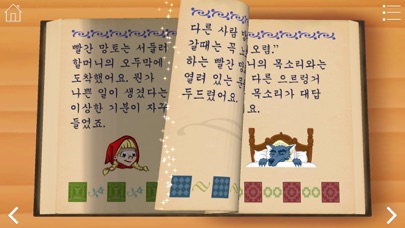 빨간 망토는 서둘러
할머니의 오두막에
도착했어요. 뭔가
나쁜 일이 생겼다는
이상한 기분이 자꾸
들었죠.
다른 사람
갈때는 꼭
하는 빨간
열려 있는
두드렸어요.
오렴."
니의 목소리와는
다른 으르렁거
목소리가 대답